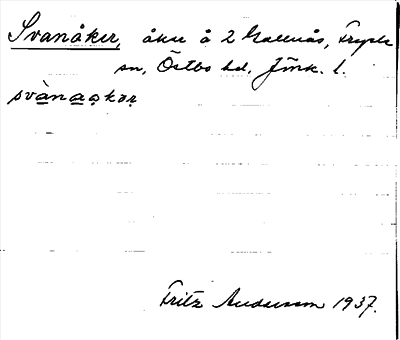 Svanåker, åker å 2 Gallnås, Fryele
sn, Östbo hd, Jönk. l.
svànaạkạr
Fritz Andersson 1937.